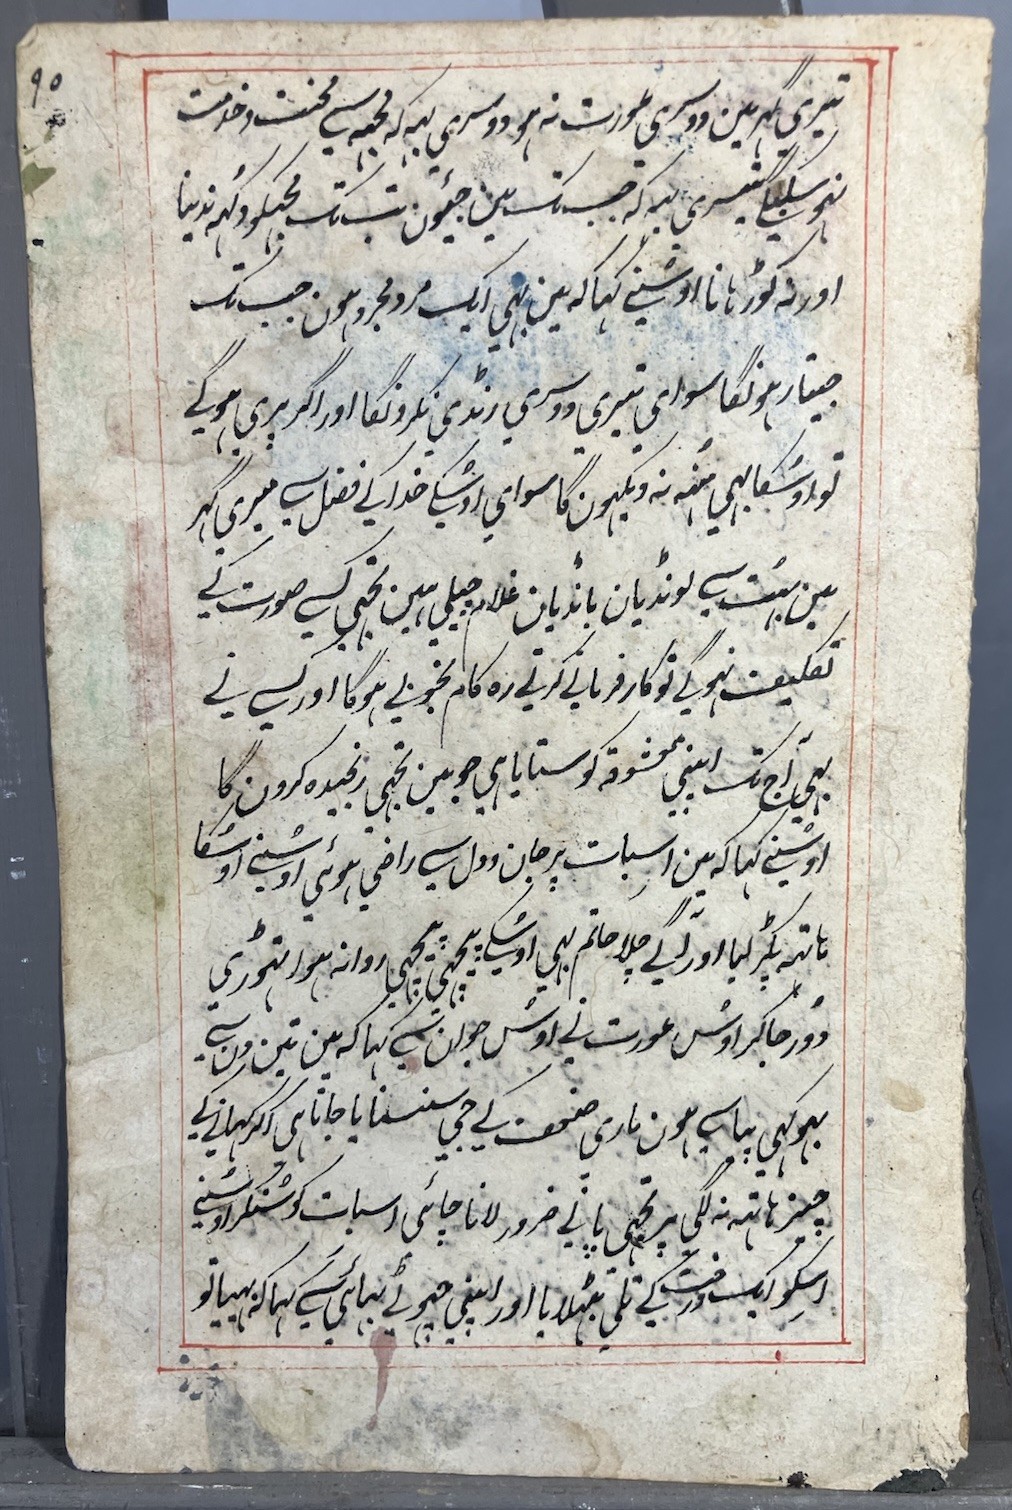 ٩٥
تیري گهر مین دوسري عورت نہ هو دوسري یہہ کہ مجہہ سے محنت و خدمت
نہو سکیگي تیسري یہہ کہ جب تک مین جیٔون تب تک مجہکو دکہہ ندینا
اور نہ کوڑہانا اوسنے کہا کہ مین بهي ایک مرد مجرد هون جب تک
جیتا رهونگا سواي تیري دوسري رنڈي نکرونگا اور اگر پري هوگے
تو اوسکا بهي منہہ نہ دیکہون گا سواي اوسکے خدا کے فضل سے میري گهر
مین بہت سے لونڈیان باندیان غلام چیلي هین تجہي کسے صورت کے
تکلیف نہوگے تو کار فرمانے کرتے رہ کام بخوبے هوگا اور کسے نے
بهي آج تک اپني معشوقہ کو ستایا هي جو مین تجہي رنجیدہ کرون گا
اوسنے کہا کہ مین اسبات پر جان و دل سے راضي هوئي اوسنے اوسکا
هاتہہ پکڑ لیا اور آگے چلا حاتم بهي اوسکے پیچہي پیچہي روانہ هوا تہوڑي
دور جا کر اوس عورت نے اوس جوان سے کہا کہ مین تین دن سے
بهوکہي پیاسے هون ماري ضعف کے جي سنسنایا جاتا هي اگر کہانے کے
چیز هاتہہ نہ لگي پر تجہي پانے ضرور لانا چاهئي اسبات کو سنکر اوسنے
اسکو ایک درخت کے تلي بٹہلایا اور اپني چهوٹے بهائي سے کہا کہ بهیا تو